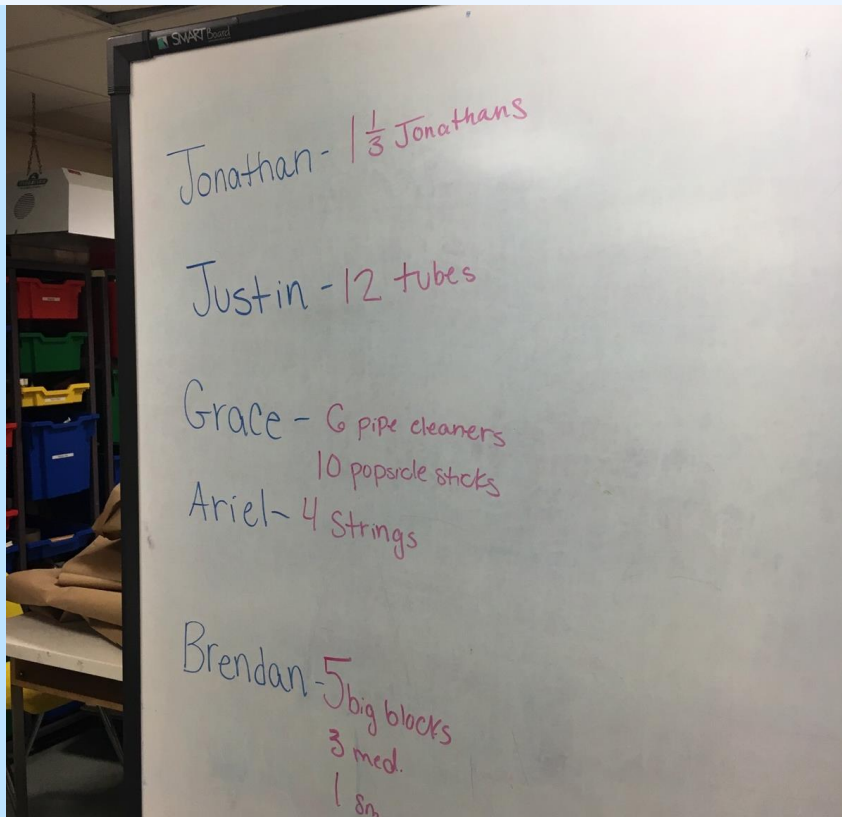 SMART Board
Jonathan - 1 1/3 Jonathans
Justin - 12 tubes
Grace - 6 pipe cleaners
10 popsicle sticks
Ariel - 4 strings
Brendan - 5 big blocks
3 med.
1 sm